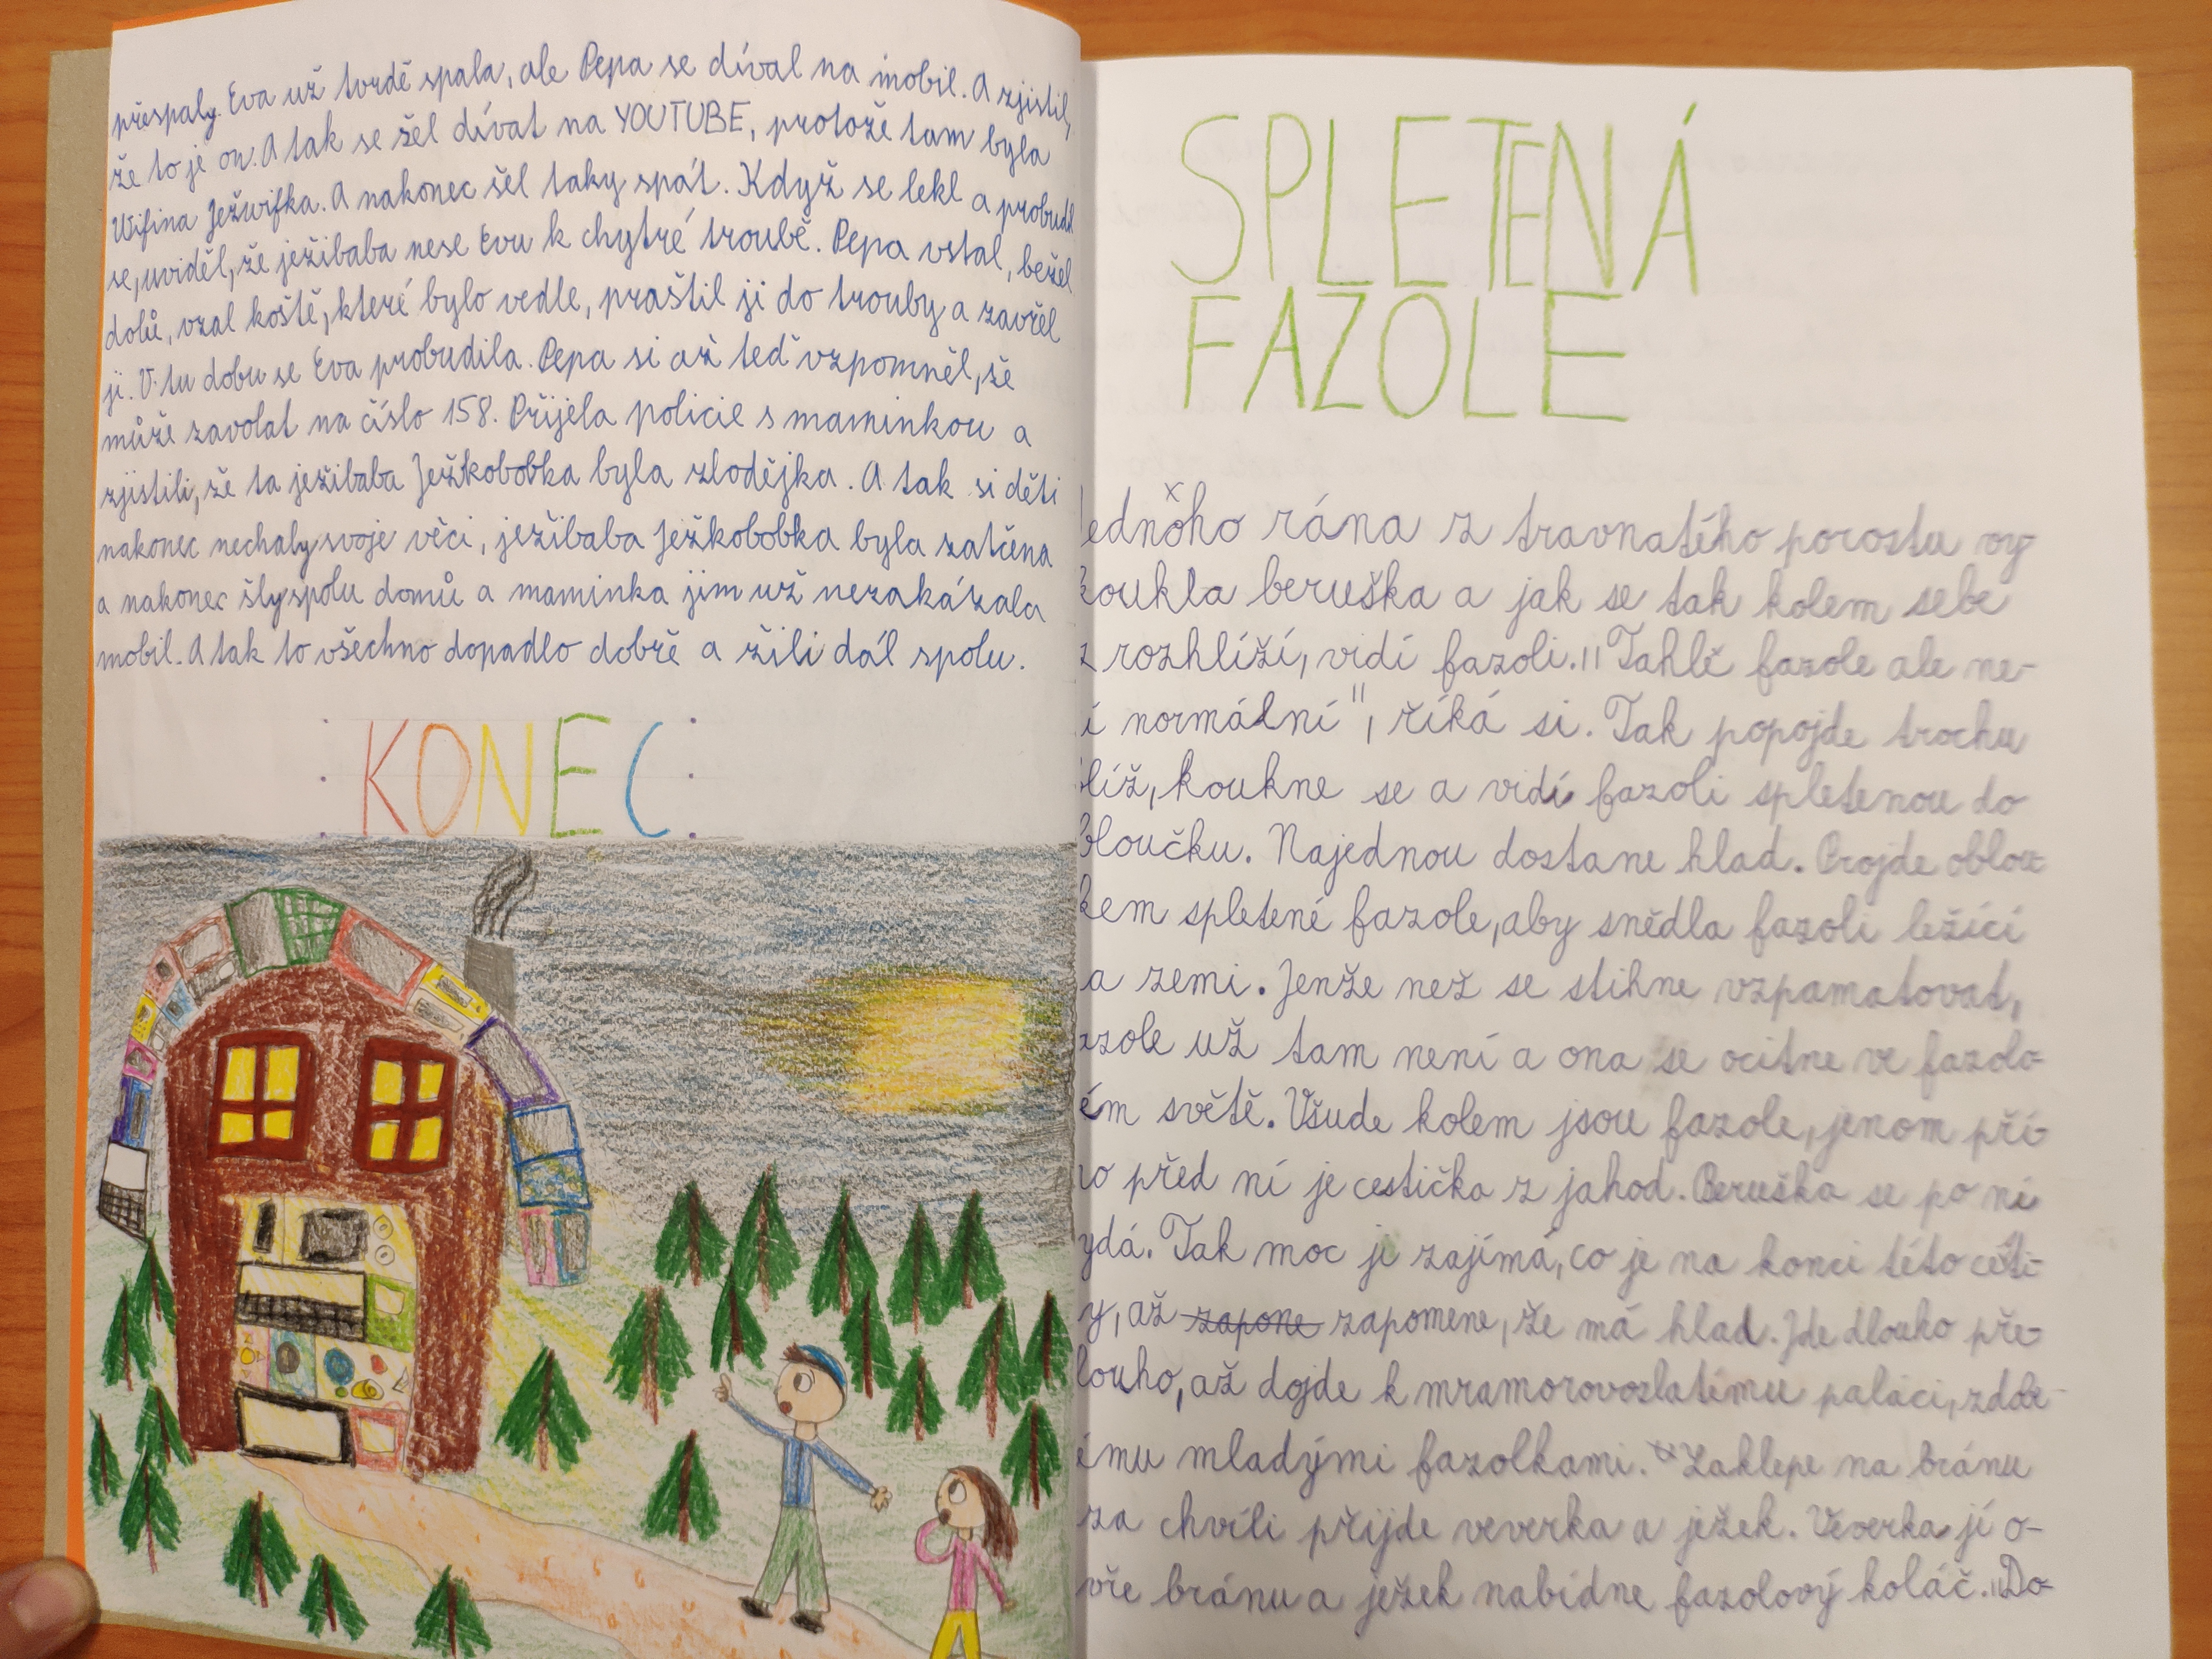 přespaly. Eva už tvrdě spala, ale Pepa se díval na mobil. A zjistil,
že to je on. A tak se šel dívat na YOUTUBE, protože tam byla
Wifina Ježwifka. A nakonec šel taky spát. Když se lekl a probudil
se, uviděl, že ježibaba nese Evu k chytré troubě. Pepa vstal, bežel
dolů, vzal koště, které bylo vedle, praštil ji do trouby a zavřel
ji. V tu dobu se Eva probudila. Pepa si až teď vzpomněl, že
může zavolat na číslo 158. Přijela policie s maminkou a
zjistili, že ta ježibaba Ježkobobka byla zlodějka. A tak si děti
nakonec nechaly svoje věci, ježibaba Ježkobobka byla zatčena
a nakonec šly spolu domů a maminka jim už nezakázala
mobil. A tak to všechno dopadlo dobře a žili dál spolu.
KONEC
SPLETENÁ
FAZOLE
ednoho rána z travnatého porostu vy-
koukla beruška a jak se tak kolem sebe
z rozhlíží, vidí fazoli. "Tahle fazole ale ne-
í normální", říká si. Tak popojde trochu
blíž, koukne se a vidí fazoli spletenou do
bloučku. Najednou dostane hlad. Projde oblou-
kem spletené fazole, aby snědla fazoli ležící
a zemi. Jenže než se stihne vzpamatovat,
azole už tam není a ona se ocitne ve fazolo-
ém světě. Všude kolem jsou fazole, jenom pří-
o před ní je cestička z jahod. Beruška se po ní
ydá. Tak moc ji zajímá, co je na konci této cesti-
y, až zapone zapomene, že má hlad. Jde dlouho pře-
louho, až dojde k mramorovozlatému paláci, zdobe-
ému mladými fazolkami. Zaklepe na bránu
za chvíli přijde veverka a ježek. Veverka jí o-
vře bránu a ježek nabídne fazolový koláč. "Do-